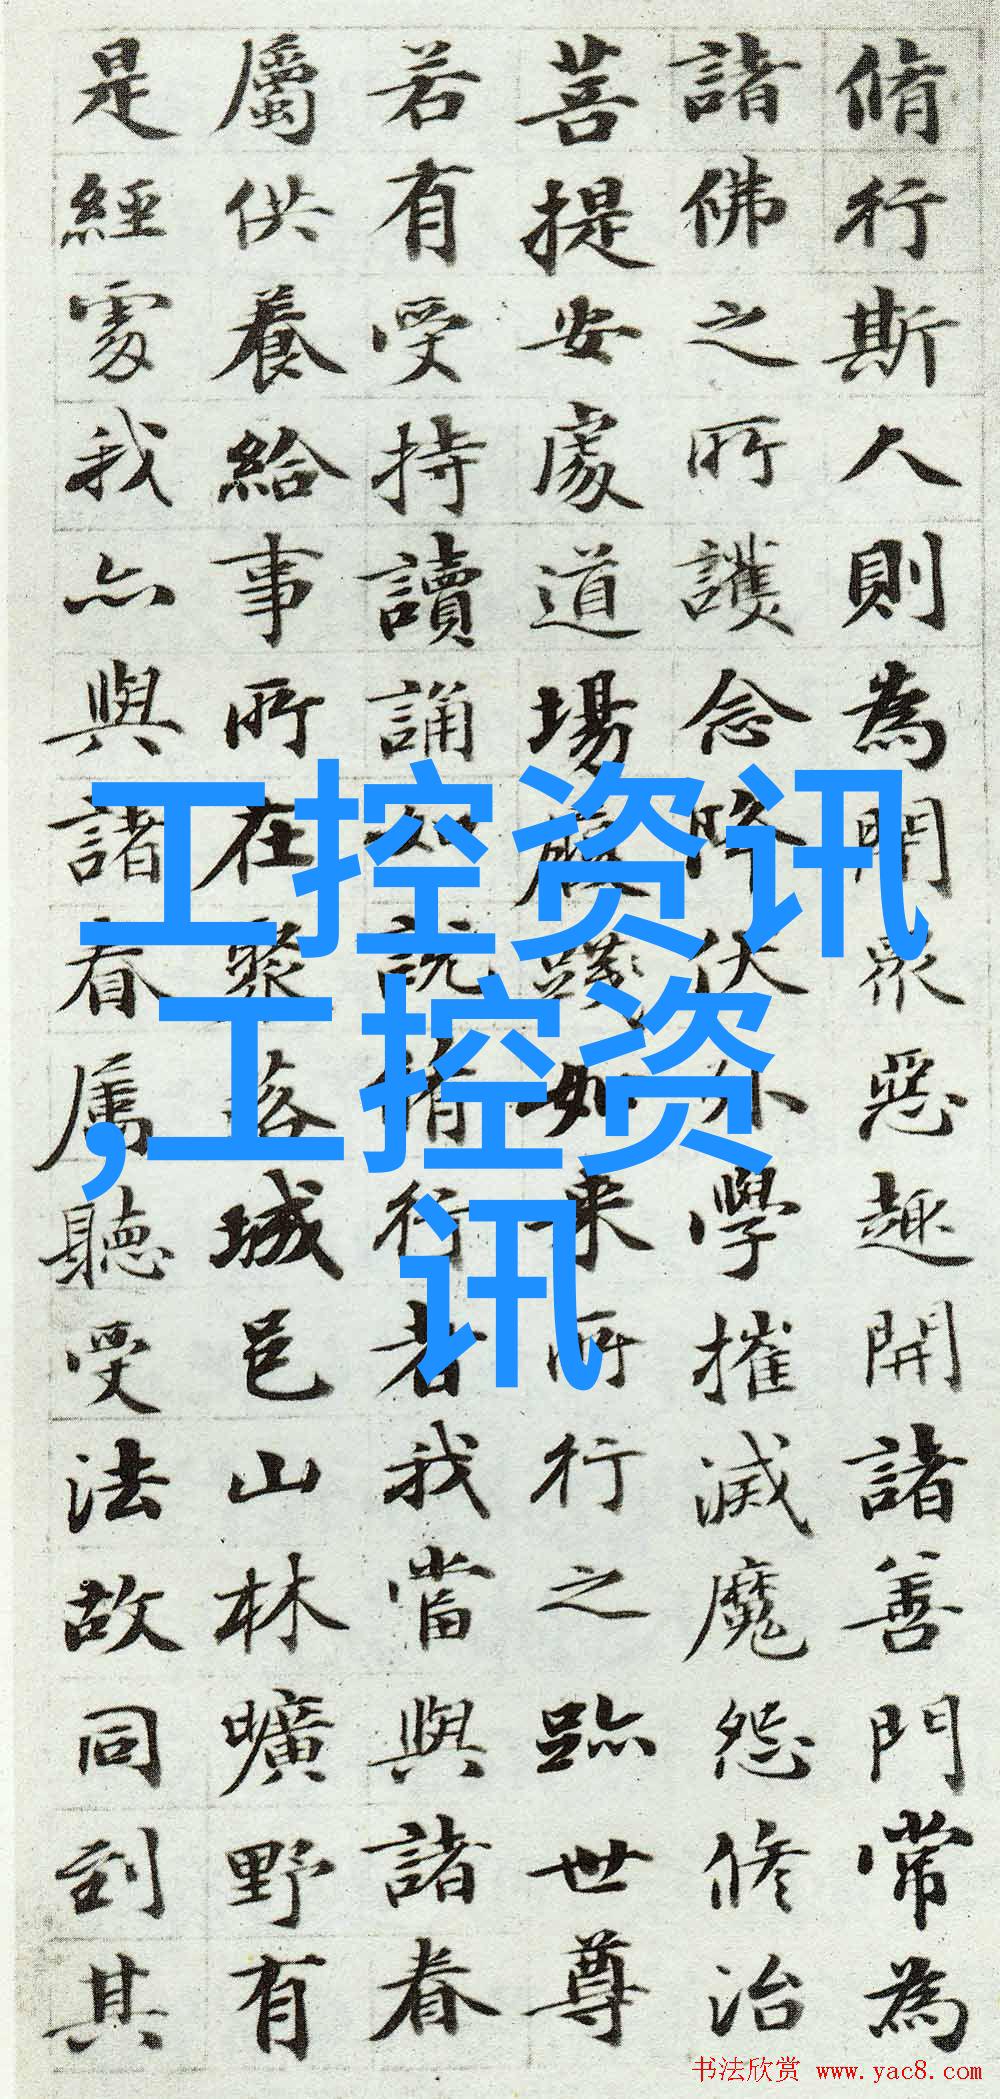 脩行斯人則為閇眾惡趣開諸善門常為
諸佛之所護念降伏外學摧滅魔怨修治
菩提安處道場履踐如来所行之跡世尊
若有受持讀誦如說脩行者我當與諸眷
屬供養給事所在聚落城邑山林曠野有
是經處我亦與諸眷属聽受法故同到其
工控资讯
,工控资
讯
书法欣赏 www.yac8.com